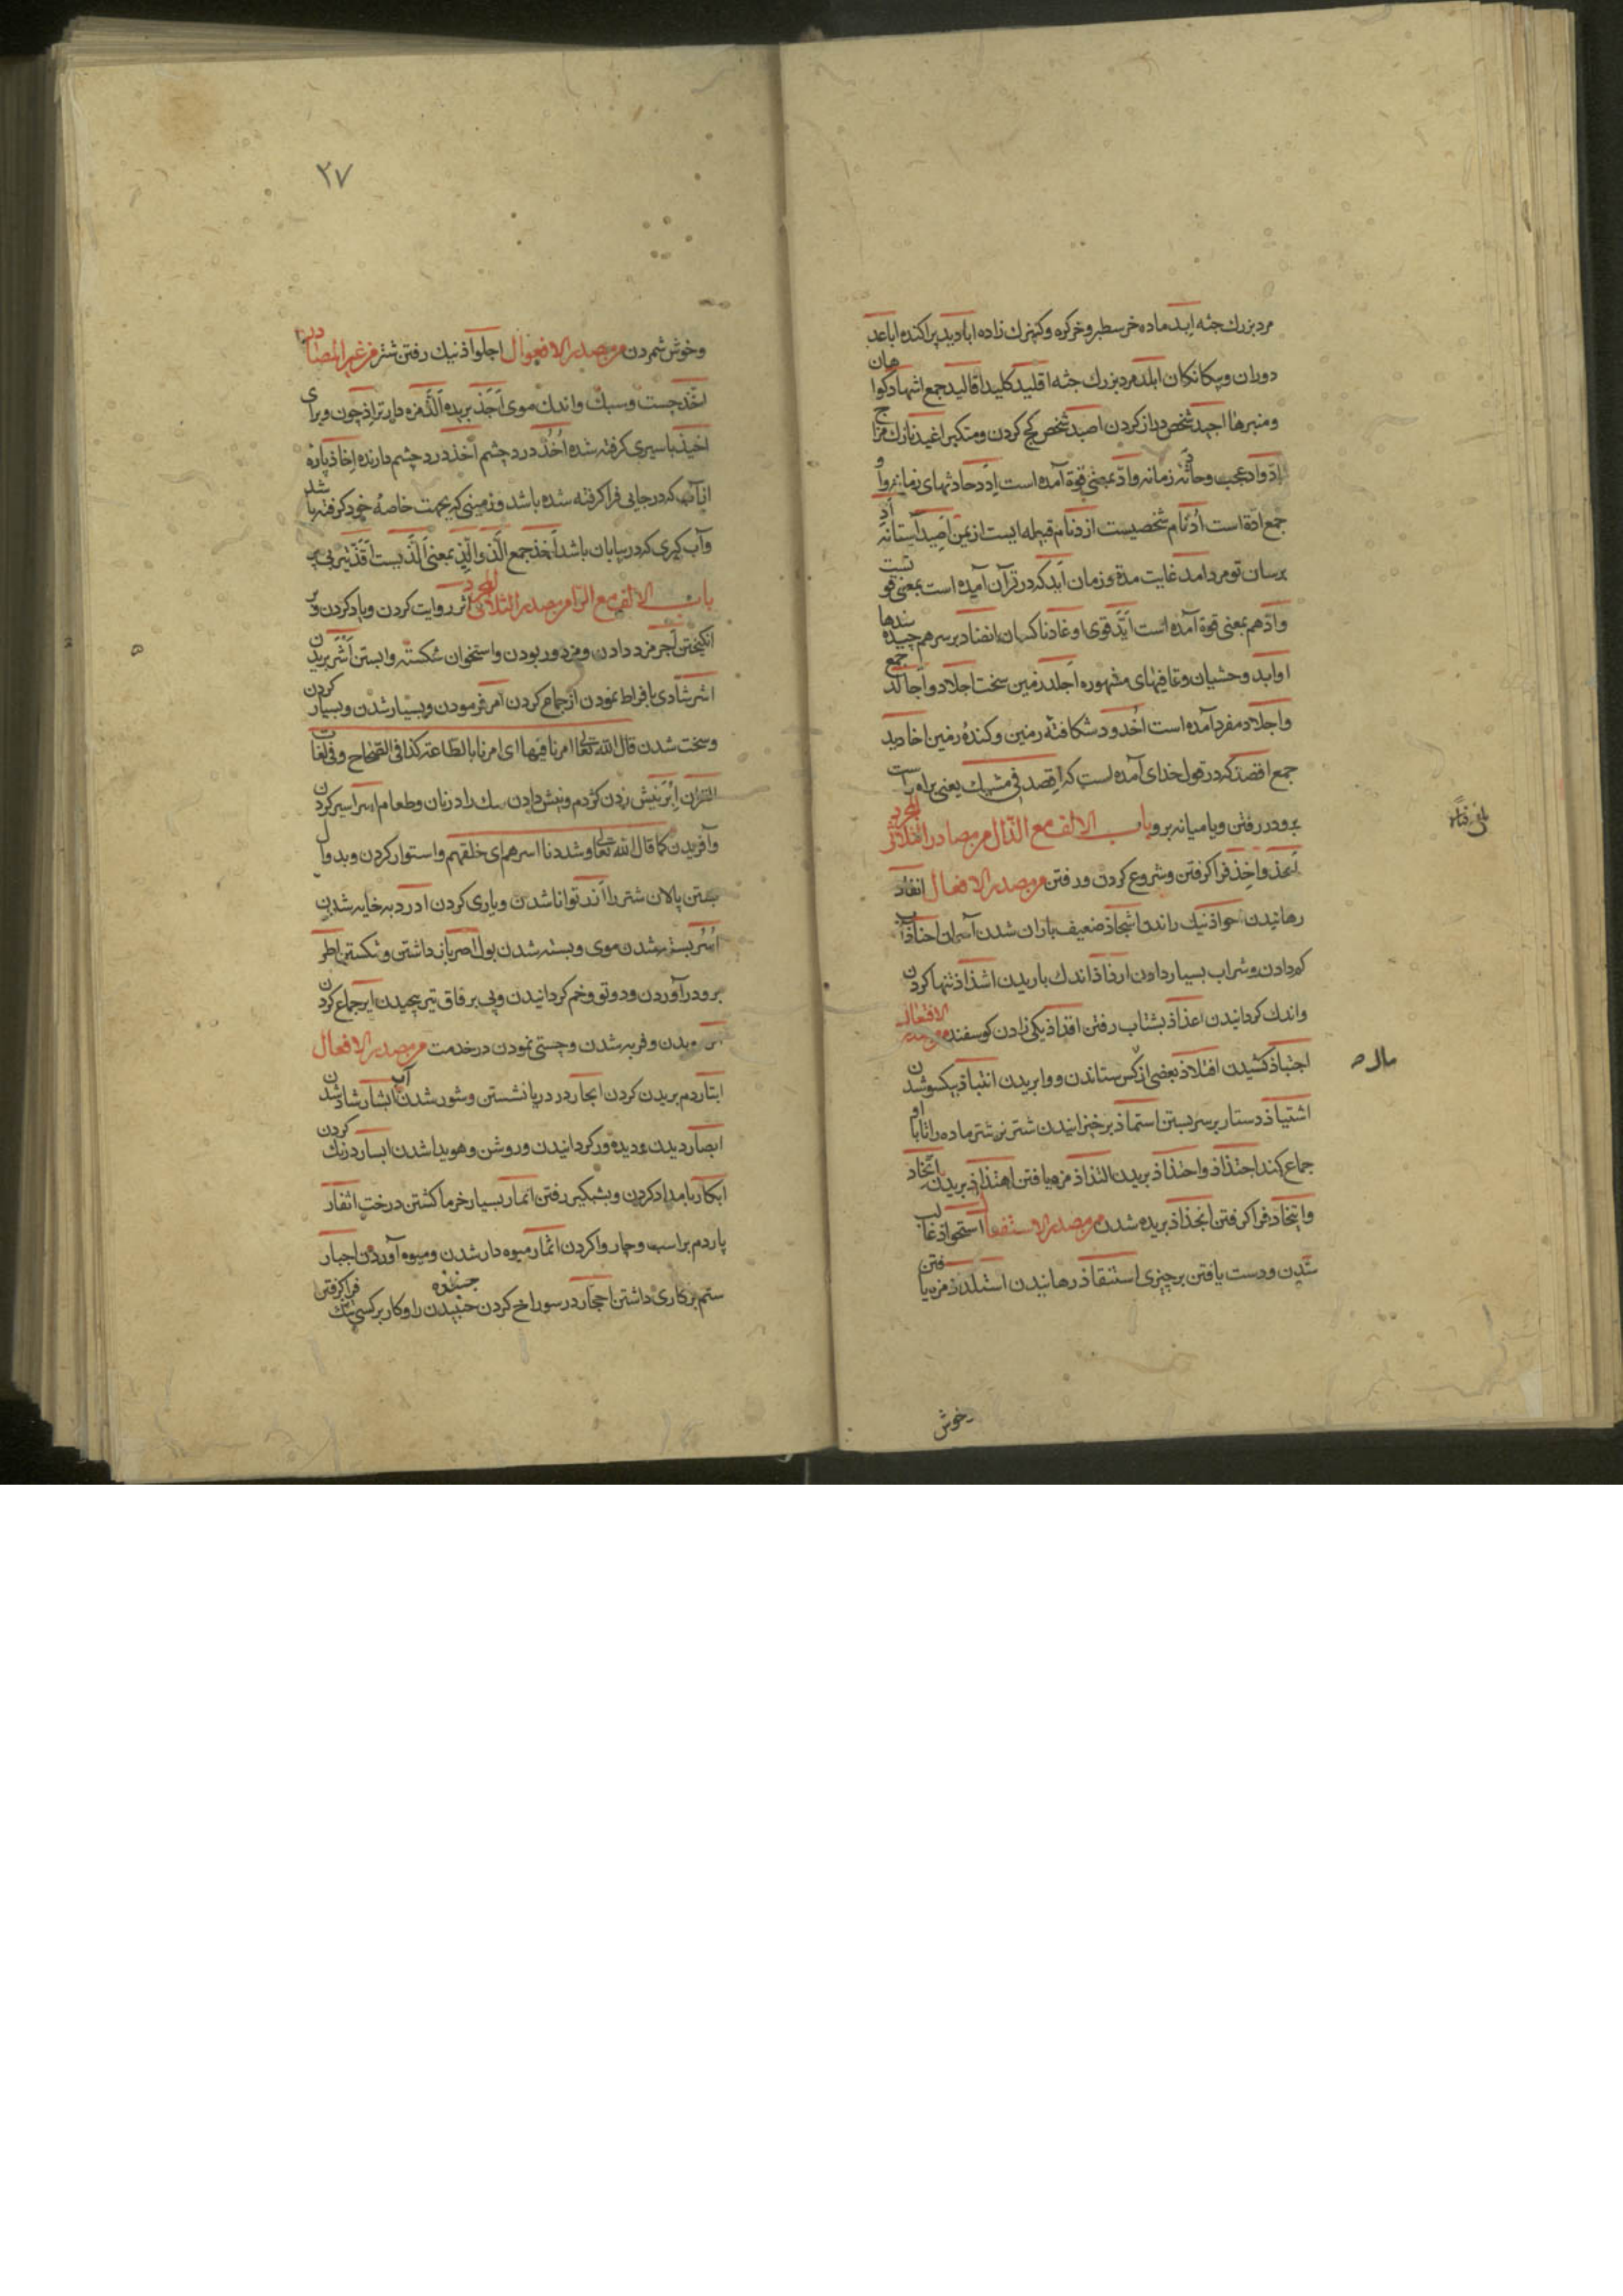 مرد بزرك جثه ابد ماده خر سطبر و خركره و كنيزك زاده ابادید پراكنده اباعد
دوران و بیكانكان ابلد مرد بزرك جثه اقلید كلید اقالید جمع اشهاد كواهان
و منبرها اجید شخص دراز كردن اصید شخص كج كردن و متكبر اغید نازك مزاج
اد و اد عجب و حادثه زمانه و اد بمعنی قوة آمده است ادد حادثهای زمانه
جمع ادة است ادد نام شخصیست ازد نام قبیله ایست از یمن اصید آستانه
برسان تو مرد امد غایت مدة و زمان اید كه در قرآن آمده است بمعنی قوتست
و ادهم بمعنی قوة آمده است اید قوی اوغاد ناكسان انضاد بر سر هم چیده
اوابد وحشیان و قافیتهای مشهوره اجلد زمین سخت اجلاد و اجالد جمع
و اجلاد مفرد آمده است اخدود شكافته زمین و كنده زمین اخادید
جمع اقصد كه در قول خدای آمده است كه اقصد فی مشیك یعنی براه راست
برو در رفتن و یا میانه برو باب الالف مع الذال من مصادر الثلاثی المجرد
اخذ و اخذ فرا كرفتن و شروع كردن و رفتن من مصدر الافعال انقاذ
رهانیدن احواذ نیك راندن اشجاذ ضعیف باران شدن آسمان احناذ آب
كم دادن و شراب بسیار دادن ارذاذ اندك باریدن اشذاذ تنها كردن
و اندك كردانیدن اغذاذ بشتاب رفتن افذاذ یكی زادن كوسفند من مصدر الافتعال
اجتباذ كشیدن افتلاذ بعضی از كس ستاندن و وا بریدن انتباذ بیكسو شدن
اشتیاذ دستار بر سر بستن استماذ برخیزانیدن شتر نر شتر ماده را تا با او
جماع كند اجتذاذ و احتذاذ بریدن التذاذ مزه یافتن اهتذاذ بریدن اتخاذ
و ایتخاذ فرا كرفتن انجذاذ بریده شدن من مصدر الاستفعال استحواذ غالب
شدن و دست یافتن بر چیزی استنقاذ رهانیدن استلذاذ مزه یافتن
خوش
٢٧
و خوش شمردن من مصدر الافعوال اجلواذ نیك رفتن شتر من غیر المصادر
احذ چست و سبك و اندك موی اجذ بریده الذ مزه دارتر اذ چون و برای
اخیذ باسیری كرفته شده اخذ درد چشم اخذ درد چشم دارنده اخاذ پاره
از آب كه در جایی فرا كرفته شده باشد و زمینی كه بجهت خاصه خود كرفته باشد
و آب كیری كه در بیابان باشد اخذ جمع الذ و الذ بمعنی الذیست اقذ تیر بی پر
باب الالف مع الرا من مصدر الثلاثی المجرد اثر روایت كردن و یاد كردن و بر
انكیختن اجر مزد دادن و مزدور بودن و استخوان شكسته وا بستن اشر بریدن
اشر شادی بافراط نمودن از جماع كردن امر فرمودن و بسیار شدن و بسیار كردن
و سخت شدن قال الله تعالی امرنا فیها ای امرنا بالطاعة كذا فی الصحاح و فی لغات
القرآن ابر نیش زدن كژدم و نیش دادن سك را در نان و طعام اسر اسیر كردن
و آفریدن كما قال الله تعالی و شددنا اسرهم ای خلقهم و استوار كردن و بدوال
بستن پالان شتر را ازر توانا شدن و یاری كردن ادر دبه خایه شدن
اسر بسته شدن موی و بسته شدن بول اصر باز داشتن و شكستن اطر
برو درآوردن و دو تو و خم كردانیدن و پی بر فاق تیر پیچیدن ایر جماع كردن
بدن و فربه شدن و چستی نمودن در خدمت من مصدر الافعال
ابتار دم بریدن كردن ابحار در دریا نشستن و شور شدن آب ابشار شاد شدن
ابصار دیدن و دیده ور كردانیدن و روشن و هویدا شدن ابسار درنك كردن
ابكار بامداد كردن و بشبكیر رفتن اتمار بسیار خرما كشتن درخت اثفار
پاردم بر اسب و چاروا كردن اثمار میوه دار شدن و میوه آوردن اجبار
ستم بر كاری داشتن احجار در سوراخ كردن جنبنده را و كار بر كسی تنك فرا كرفتن